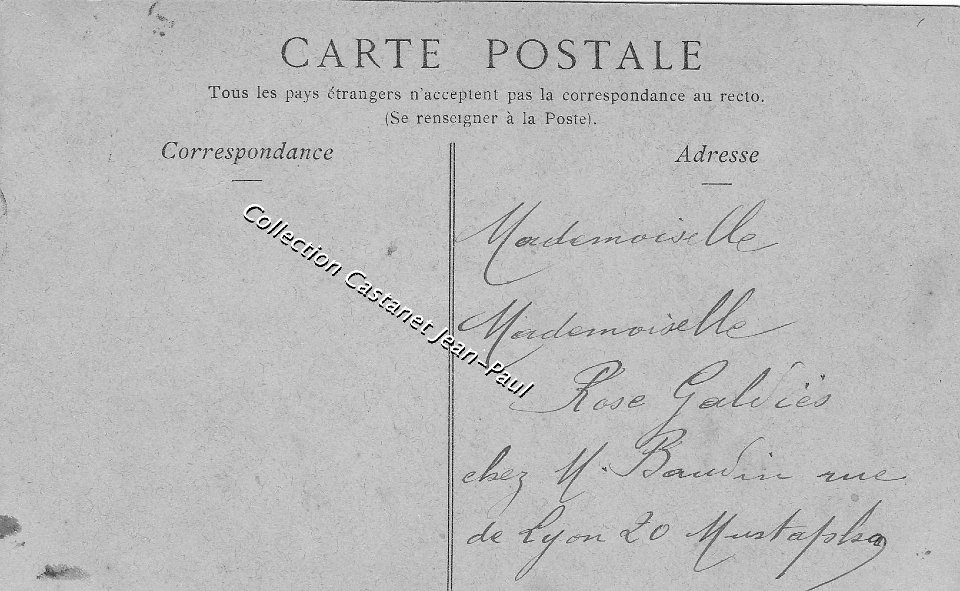 CARTE POSTALE
Tous les pays étrangers n'acceptent pas la correspondance au recto.
(Se renseigner à la Poste).
Correspondance
Adresse
Collection Castanet Jean-Paul
Mademoiselle
Mademoiselle
Rose Galdiës
chez M. Baudin rue
de Lyon 20 Mustapha